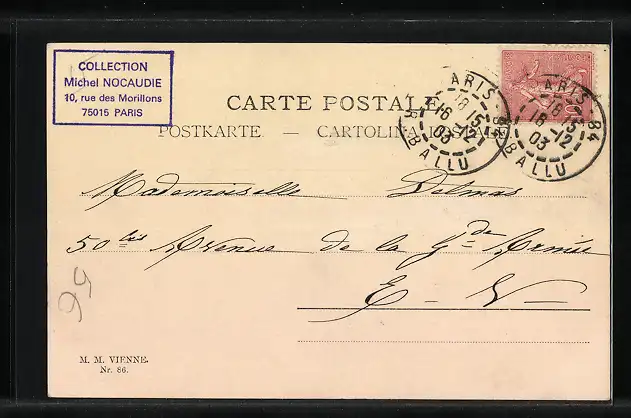 COLLECTION
Michel NOCAUDIE
10, rue des Morillons
75015 PARIS
CARTE POSTALE
POSTKARTE. — CARTOLINA
PARIS 84
18 15
16 -12
03
R. BALLU
PARIS 84
18 15
16 -12
03
R. BALLU
Mademoiselle Delmas
50 bis Avenue de la Gde Armée
E - V -
M. M. VIENNE.
Nr. 86.